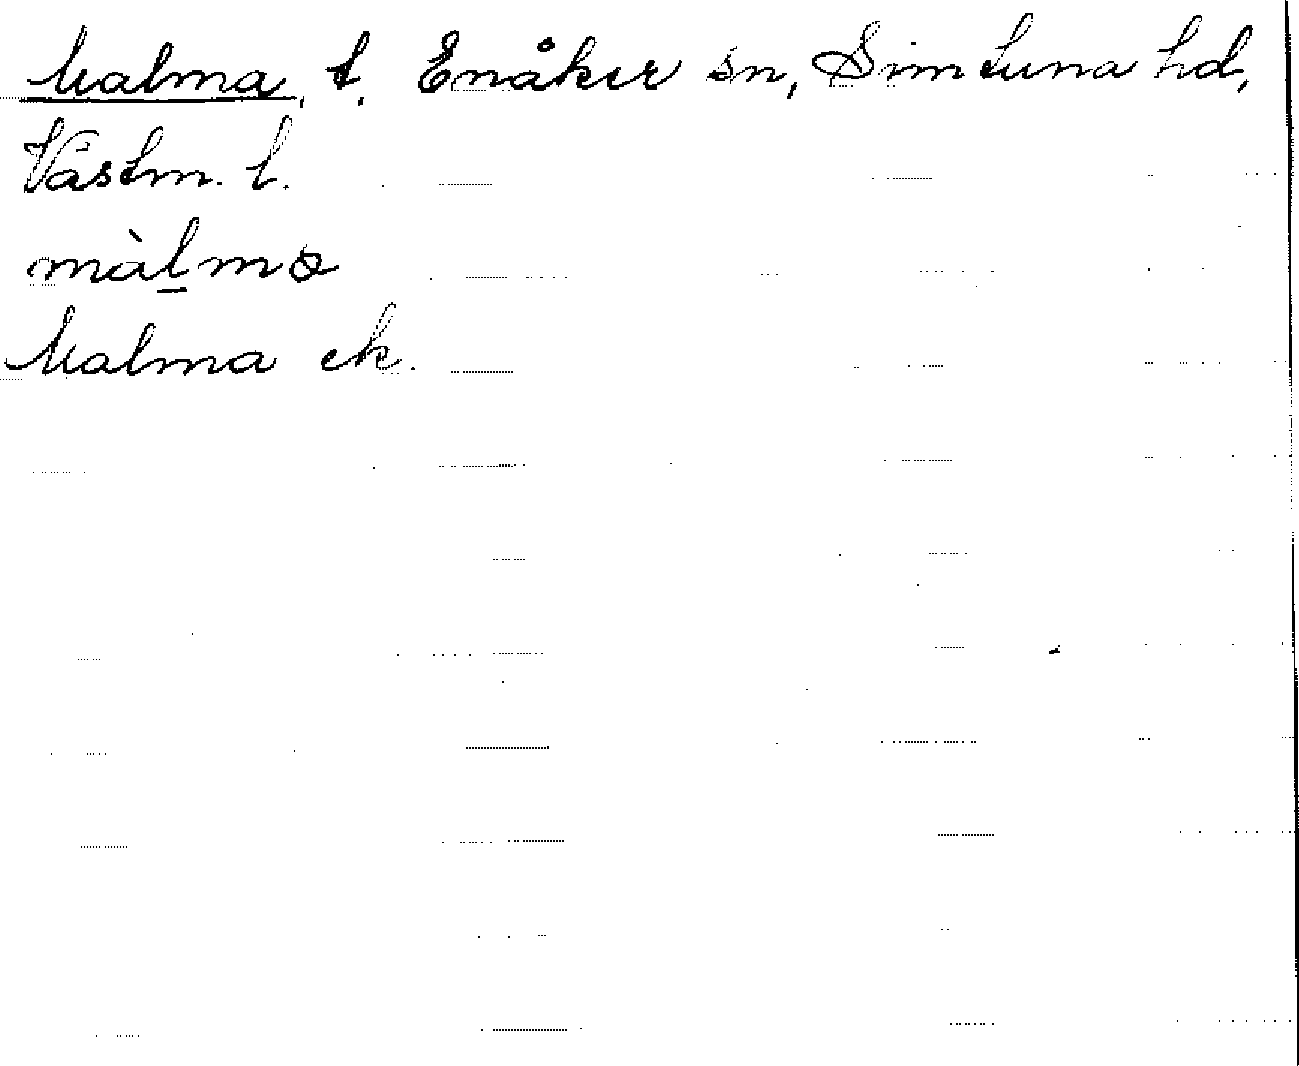 Malma, t. Enåker sn, Simtuna hd,
Västm. l.
màl̠mɷ
Malma ek.